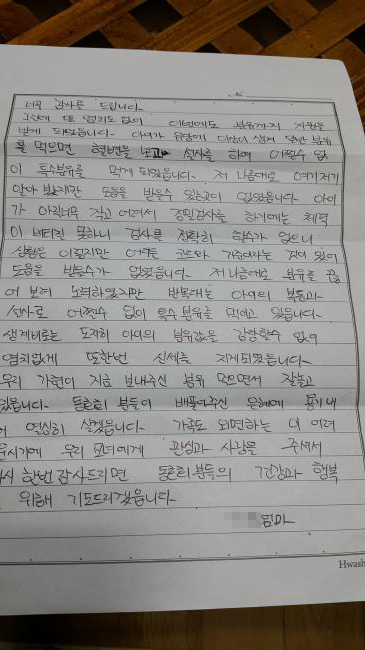 너무 감사를 드립니다.
그런데 또 염치도 없이 이번에도 분유까지 지원을
받게 되었습니다. 아이가 유당에 이상이 생겨 일반 분유
를 먹으면 혈변을 보고 설사를 하여 어쩔수 없
이 특수분유를 먹게 되었습니다. 저 나름대로 여기저기
알아 봤지만 도움을 받을수 있는곳이 없었습니다. 아이
가 아직너무 작고 어려서 정밀검사를 하기에는 체력
이 버티질 못하니 검사를 정확히 할수가 없으니
상황은 이렇지만 어떠한 코드와 가능이라는 것이 있어
도움을 받을수가 없었습니다. 저 나름대로 분유를 끊
어 보려 노력하였지만 반복대는 아이의 복통과
설사로 어쩔수 없이 특수 분유를 먹이고 있습니다.
생계비로는 도저히 아이의 분유값을 감당할수 없어
염치없게 또한번 신세를 지게되었습니다.
우리 가현이 지금 보내주신 분유 먹으면서 잘놀고
있습니다. 동행 분들이 베풀어주신 은혜에 용기 내
어 열심히 살겠습니다. 가족도 외면하는 내 어려
운시기에 우리 모녀에게 관심과 사랑을 주셔서
다시 한번 감사드리면 분들의 건강과 행복
을 위해 기도드리겠습니다
엄마
Hwash